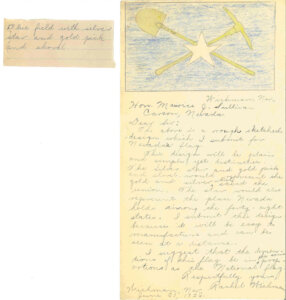 Blue field with silver
star and gold pick
and shovel.
Weekman, Nev.
Hon. Maurice J. Sullivan
Carson, Nevada
Dear Sir:
The above is a rough sketched
design which I submit for
Nevada's flag.
This design will be plain
and simple yet distinctive.
The silver star and gold pick
and shovel would represent the
gold and silver state of the
Union. The star would also
represent the place Nevada
holds among the forty eight
states. I submit this design
because it will be easy to
manufacture and can be
seen at a distance.
I suggest that the dimensions
of this flag be in
as the National flag.
Respectfully yours,
Rachel
Nev.
June 23, 1926.